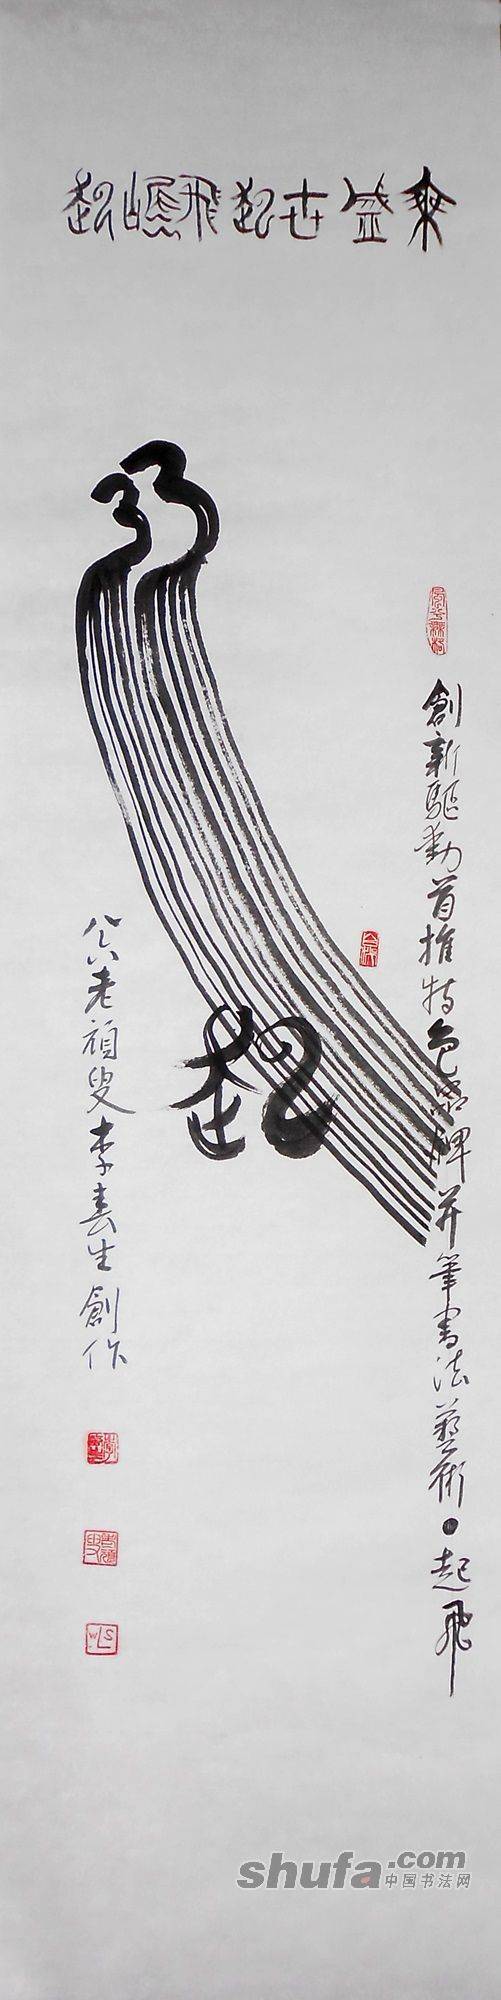 乘盛世起飛起
飛
起
創新驅動首推特色品牌并筆書法藝術●起飛
老頑叟李春生創作
shufa.com
中国书法网